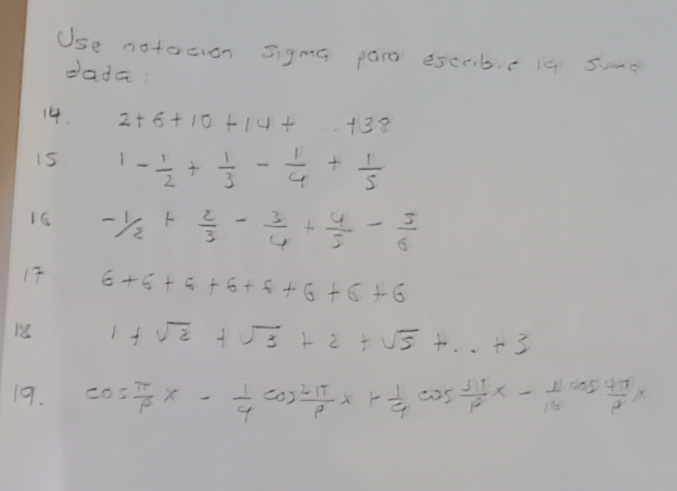 Use notación sigma para escribir la suma
dada:
14. 2+6+10+14+ ...+38
15. 1 - 1/2 + 1/3 - 1/4 + 1/5
16 -1/2 + 2/3 - 3/4 + 4/5 - 5/6
17 6+6+6+6+6+6+6+6
18 1+√2 +√3 +2 +√5 +...+3
19. cos π/p x - 1/4 cos 2π/p x + 1/9 cos 3π/p x - 1/16 cos 4π/p x